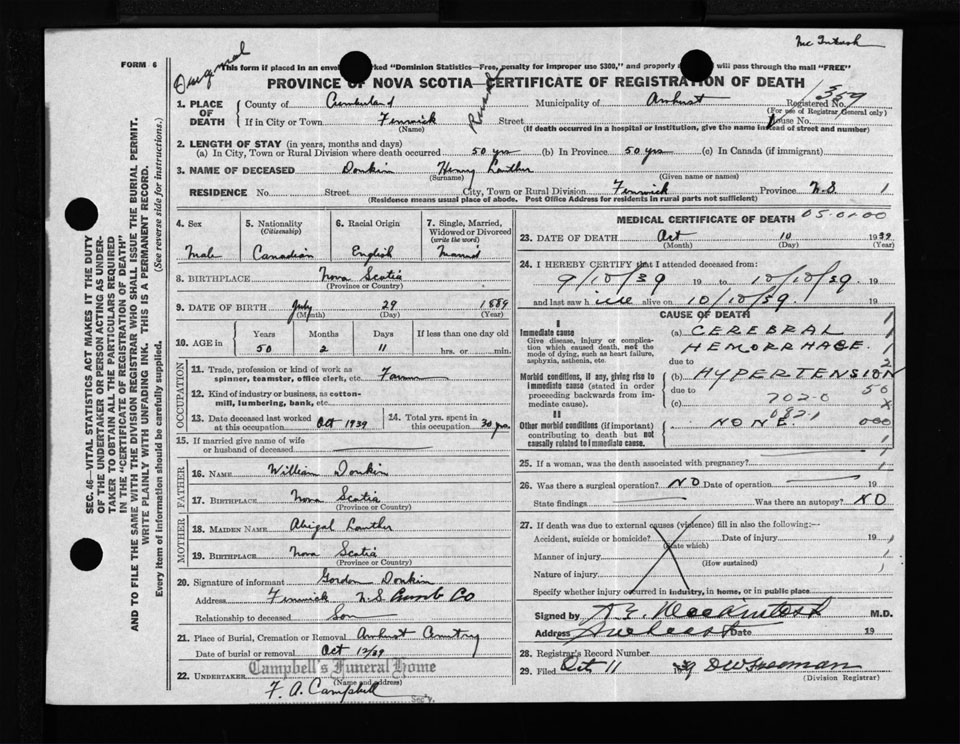 Mc Intosh
FORM 6
This form if placed in an envelope marked "Dominion Statistics—Free, penalty for improper use $300," and properly will pass through the mail "FREE"
PROVINCE OF NOVA SCOTIA—CERTIFICATE OF REGISTRATION OF DEATH
1. PLACE OF DEATH
County of Cumberland Municipality of Amherst Registered No. 359
(For use of Registrar General only)
If in City or Town Fenwick Street House No.
(Name) (If death occurred in a hospital or institution, give the name instead of street and number)
2. LENGTH OF STAY (in years, months and days)
(a) In City, Town or Rural Division where death occurred 50 yrs (b) In Province 50 yrs (c) In Canada (if immigrant)
3. NAME OF DECEASED Donkin Henry Lowther
(Surname) (Given name or names)
RESIDENCE No. Street City, Town or Rural Division Fenwick Province N.S. 1
(Residence means usual place of abode. Post Office Address for residents in rural parts not sufficient)
4. Sex 5. Nationality (Citizenship) 6. Racial Origin 7. Single, Married, Widowed or Divorced (write the word)
Male Canadian English Married
8. BIRTHPLACE Nova Scotia
(Province or Country)
9. DATE OF BIRTH July 29 1889
(Month) (Day) (Year)
10. AGE in Years Months Days If less than one day old
50 2 11 hrs. or min.
OCCUPATION
11. Trade, profession or kind of work as spinner, teamster, office clerk, etc. Farmer
12. Kind of industry or business, as cotton-mill, lumbering, bank, etc.
13. Date deceased last worked at this occupation Oct 1939 14. Total yrs. spent in this occupation 30 yrs.
15. If married give name of wife or husband of deceased
FATHER
16. NAME William Donkin
17. BIRTHPLACE Nova Scotia
(Province or Country)
MOTHER
18. MAIDEN NAME Abigal Lowther
19. BIRTHPLACE Nova Scotia
(Province or Country)
20. Signature of informant Gordon Donkin
Address Fenwick N.S. Cumb Co
Relationship to deceased Son
21. Place of Burial, Cremation or Removal Amherst Cemetry
Date of burial or removal Oct 12/39
Campbell's Funeral Home
22. UNDERTAKER F. A. Campbell
(Name and address)
MEDICAL CERTIFICATE OF DEATH 05.01.00
23. DATE OF DEATH Oct 10 1939
(Month) (Day) (Year)
24. I HEREBY CERTIFY that I attended deceased from:
9/10/39 19 to 10/10/39. 19
and last saw h alive on 10/10/39. 19
CAUSE OF DEATH
I
Immediate cause (a) CEREBRAL 1
Give disease, injury or complication which caused death, not the mode of dying, such as heart failure, asphyxia, asthenia, etc.
HEMORRHAGE. 1
due to 2
Morbid conditions, if any, giving rise to immediate cause (stated in order proceeding backwards from immediate cause).
(b) HYPERTENSION
due to 50
(c) 702-0 X
II 0821
Other morbid conditions (if important) contributing to death but not causally related to immediate cause.
NONE. 000
1
25. If a woman, was the death associated with pregnancy? 1
26. Was there a surgical operation? NO Date of operation 19
State findings Was there an autopsy? NO
27. If death was due to external causes (violence) fill in also the following:—
Accident, suicide or homicide? Date of injury 19
(State which)
Manner of injury
(How sustained)
Nature of injury
Specify whether injury occurred in industry, in home, or in public place
Signed by M.D.
Address Amherst Date 19
28. Registrar's Record Number
29. Filed Oct 11 1939 D W Freeman
(Division Registrar)
SEC. 46—VITAL STATISTICS ACT MAKES IT THE DUTY
OF THE UNDERTAKER OR PERSON ACTING AS UNDER-
TAKER TO OBTAIN ALL THE PARTICULARS REQUIRED
IN THE "CERTIFICATE OF REGISTRATION OF DEATH"
AND TO FILE THE SAME WITH THE DIVISION REGISTRAR WHO SHALL ISSUE THE BURIAL PERMIT.
WRITE PLAINLY WITH UNFADING INK. THIS IS A PERMANENT RECORD.
Every item of information should be carefully supplied. (See reverse side for instructions.)